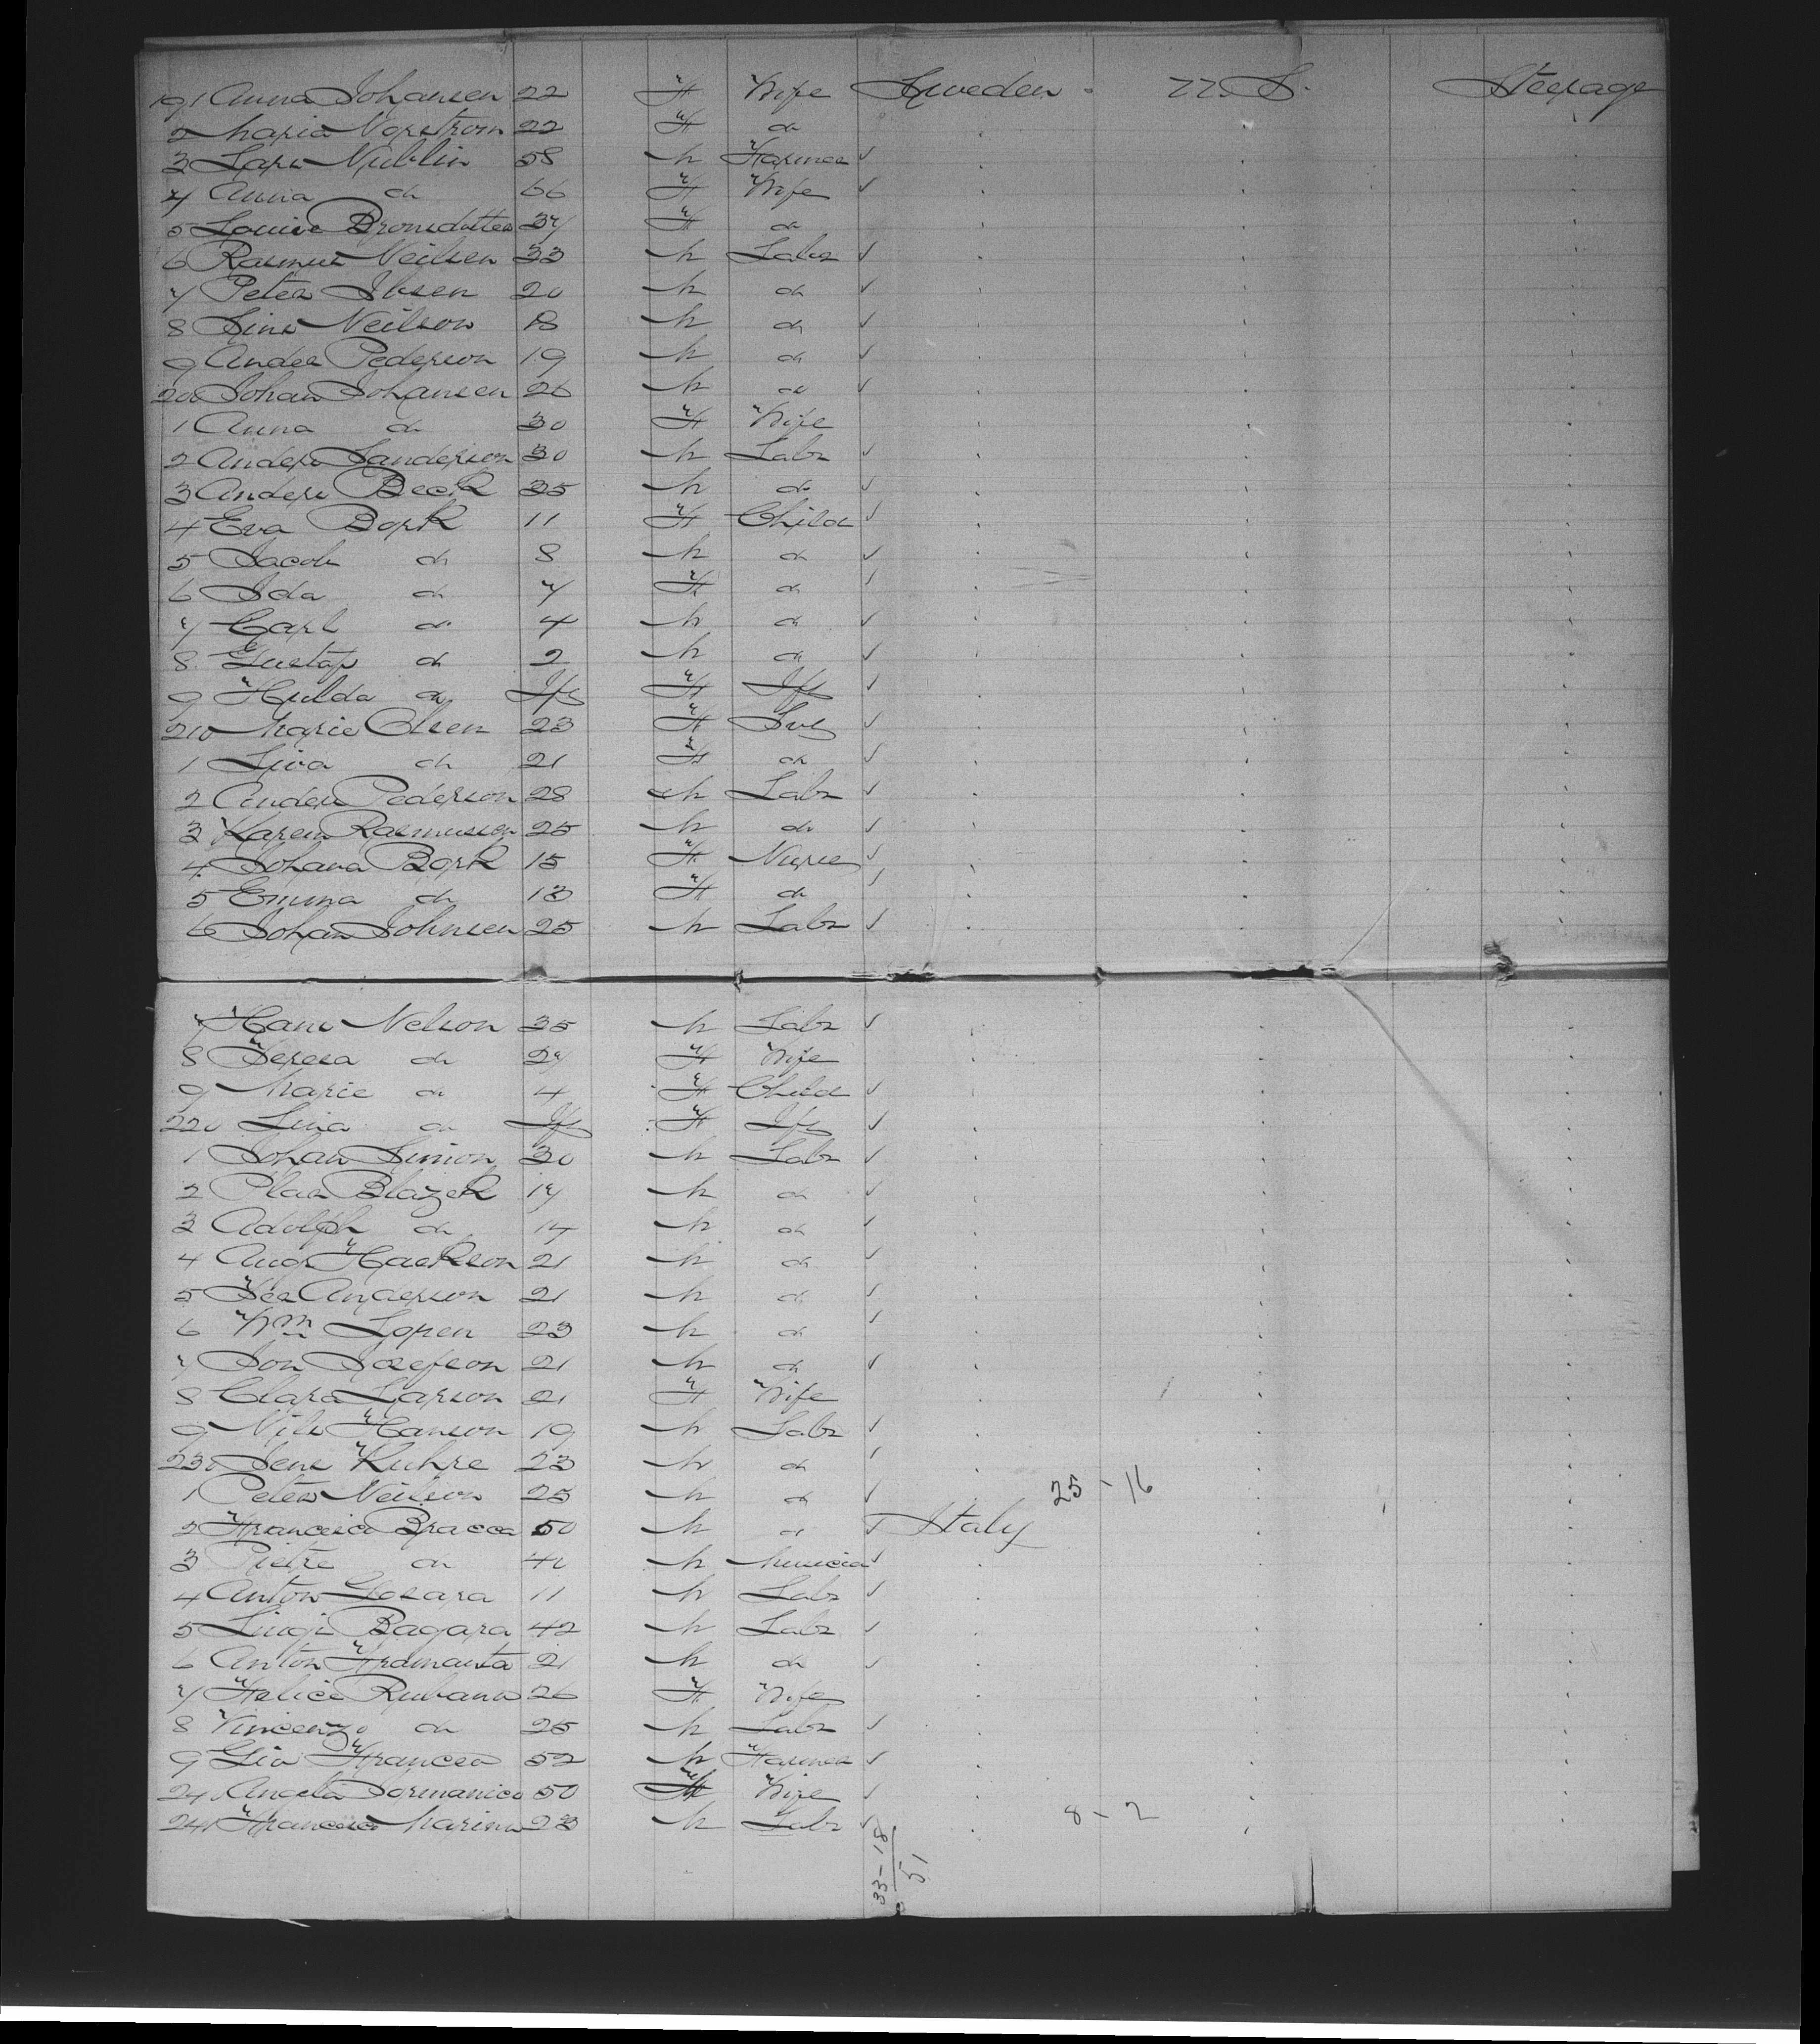 191 Anna Johansen 22 F Wife Sweden U.S. Steerage
2 Maria Norstrom 22 F do
3 Lars Nublin 58 M Farmer ✓
4 Anna do 66 F Wife ✓
5 Louise Bronsdotter 37 F do
6 Rasmus Neilsen 33 M Labr ✓
7 Peter Ibsen 20 M do ✓
8 Sins Neilson 18 M do ✓
9 Ander Pederson 19 M do ✓
200 Johan Johansen 26 M do ✓
1 Anna do 30 F Wife
2 Anders Sanderson 30 M Labr ✓
3 Anders Beck 35 M do ✓
4 Eva Bork 11 F Child ✓
5 Jacob do 8 M do ✓
6 Ida do 7 F do ✓
7 Carl do 4 M do ✓
8 Gustaf do 2 M do ✓
9 Hulda do Inf F Inf ✓
210 Marie Olsen 23 F Svt ✓
1 Siva do 21 F do ✓
2 Anders Pederson 28 M Labr ✓
3 Karen Rasmussen 25 M do ✓
4 Johana Bork 15 F Nurse ✓
5 Emma do 13 F do ✓
6 Johan Johnsen 25 M Labr ✓
7 Hans Nelson 35 M Labr ✓
8 Teresa do 27 F Wife
9 Marie do 4 F Child ✓
220 Lina do Inf F Inf ✓
1 Johan Simon 30 M Labr ✓
2 Blazek 17 M do ✓
3 Adolph do 14 M do ✓
4 Aug Hackson 21 M do ✓
5 Anderson 21 M do ✓
6 Wm Lopen 23 M do ✓
7 Jon Josefson 21 M do ✓
8 Clara Larson 21 F Wife
9 Nils Hanson 19 M Labr ✓
230 Jens Kuhre 23 M do ✓
1 Peter Neilson 25 M do ✓ 25 - 16
2 Francesco Bracca 50 M do ✓ Italy
3 Pietre do 40 M Musicia ✓
4 Anton Gosara 11 M Labr ✓
5 Luigi Bagara 42 M Labr ✓
6 Anton Framanta 21 M do ✓
7 Felice Rubano 26 F Wife
8 Vincenzo do 25 M Labr ✓
9 Gio Francea 52 M Farmer ✓
240 Angela Dormanico 50 F Wife ✓
241 Francesco Marino 23 M Labr ✓ 8 - 2
33 - 18
51